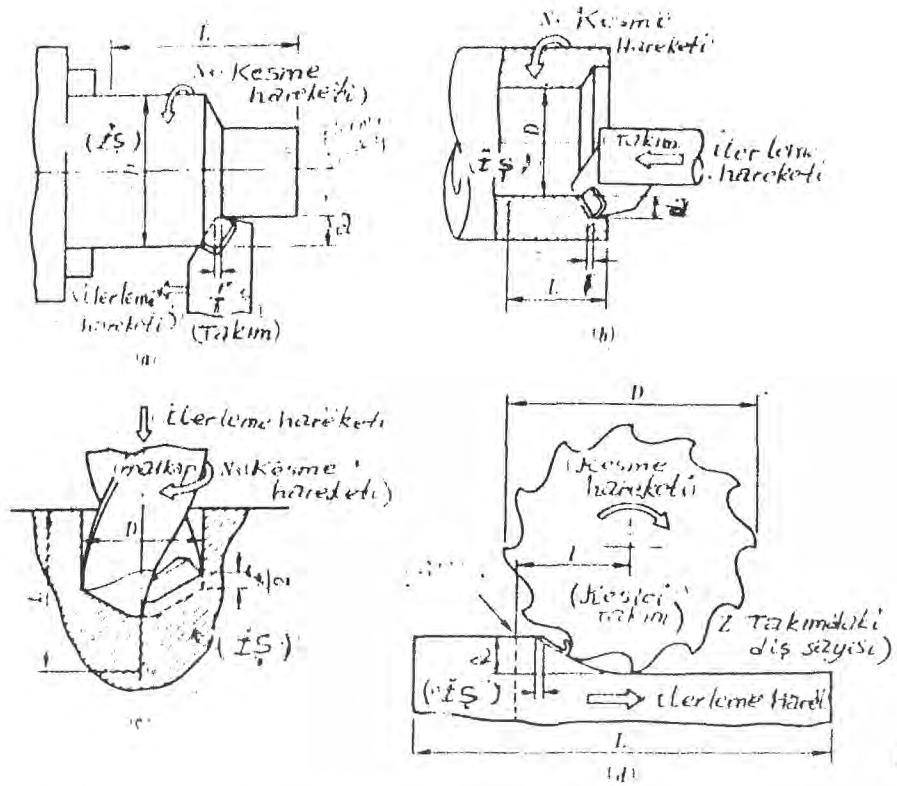 L
N Kesme
hareketi)
(İŞ)
D
d
f
(İlerleme
hareketi)
(Takım)
(a)
N Kesme
hareketi
D
(Takım
(İŞ)
ilerleme
hareketi
d
f
L
(b)
İlerleme hareketi
(matkap) N Kesme
hareketi)
D
L
(İŞ)
(c)
D
(Kesme
hareketi)
l
(Kesici
takım)
Z Takımdaki
diş sayısı)
d
(İŞ)
ilerleme hare
L
(d)